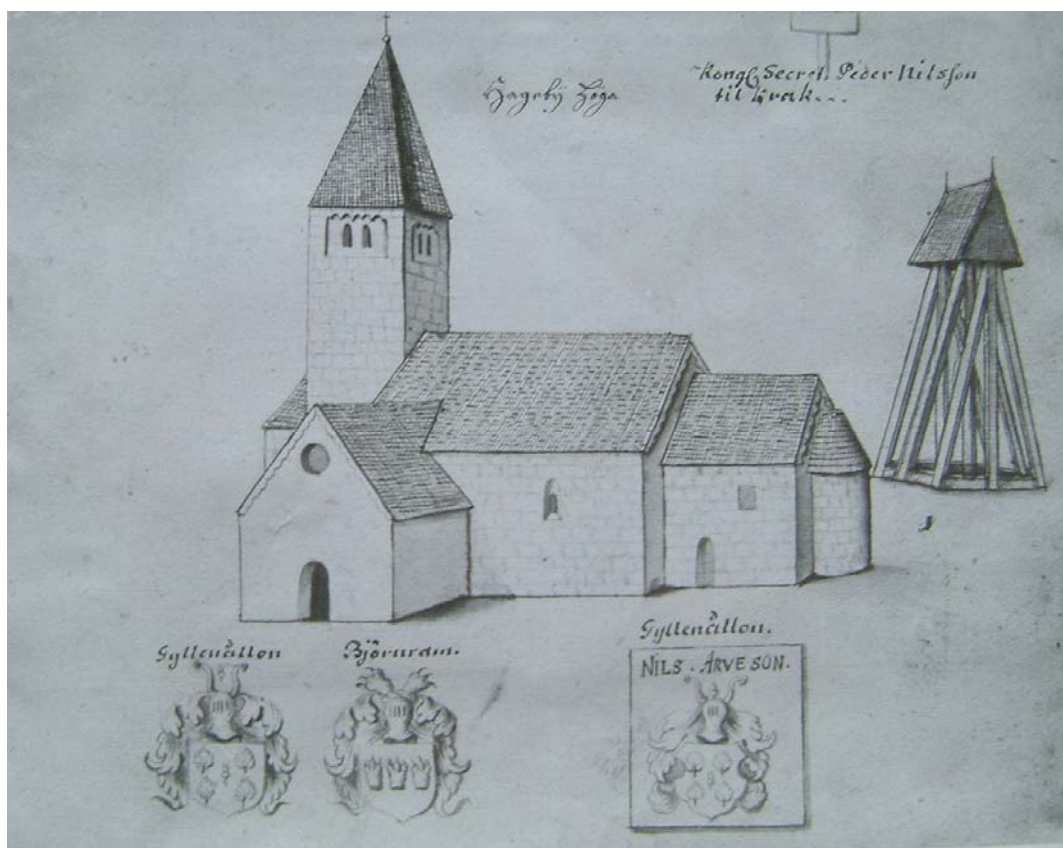 Hageby Höga
Kongl. Secret. Peder Nilsson
til Krak...
Gyllenållon
Björnram.
Gyllenållon.
NILS. ARVESON.